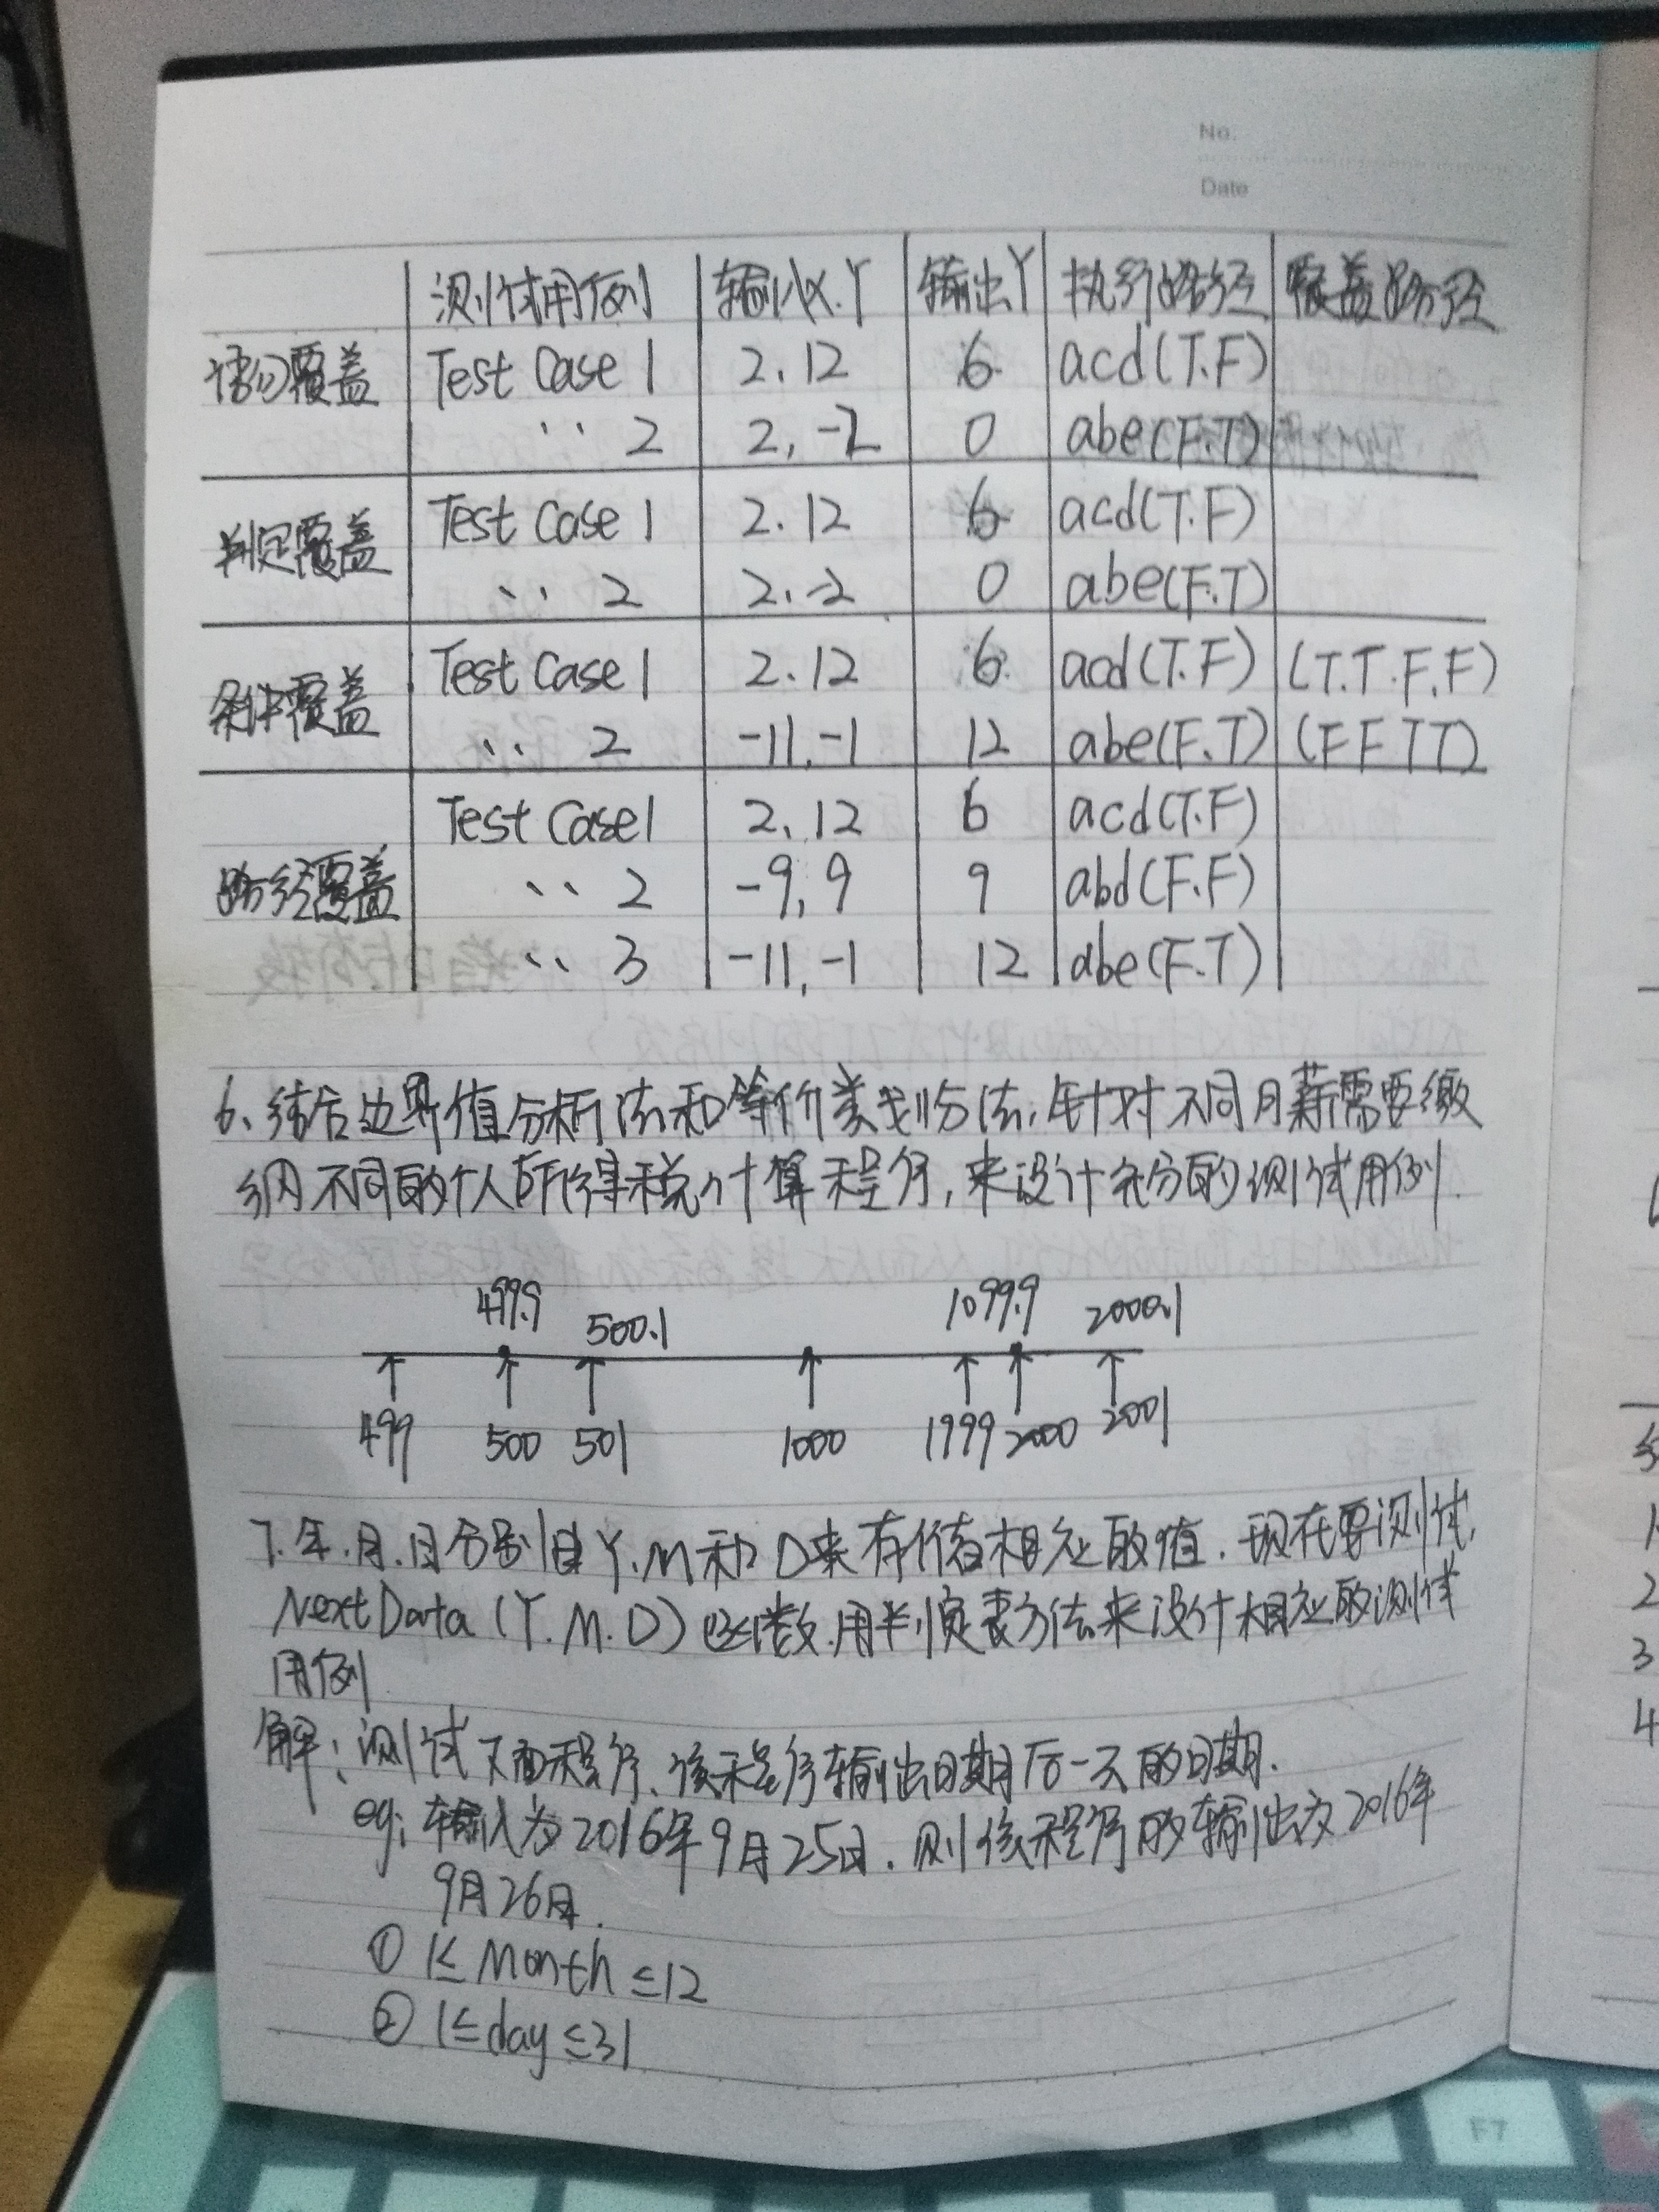 No:
Date
测试用例 输入X.Y 输出Y 执行路径 覆盖路径
语句覆盖 Test Case 1 2.12 6 acd(T.F)
〃 2 2,-2 0 abe(F.T)
判定覆盖 Test Case 1 2.12 6 acd(T.F)
〃 2 2.-2 0 abe(F.T)
条件覆盖 Test Case 1 2.12 6 acd(T.F) (T.T.F.F)
〃 2 -11,-1 12 abe(F.T) (F F T T)
Test Case1 2,12 6 acd(T.F)
路径覆盖 〃 2 -9,9 9 abd(F.F)
〃 3 -11,-1 12 abe(F.T)
6、结合边界值分析法和等价类划分法,针对不同月薪需要缴
纳不同的个人所得税计算程序,来设计充分的测试用例.
499.9 500.1 1099.9 2000.1
499 500 501 1000 1999 2000 2001
7.年.月.日分别由Y.M和D来存储相应的值.现在要测试
NextData(Y.M.D)函数.用判定表方法来设计相应的测试
用例
解:测试下面程序、该程序输出日期后一天的日期.
eg:输入为2016年9月25日.则该程序的输出为2016年
9月26日.
① 1≤Month≤12
② 1≤day≤31
F7